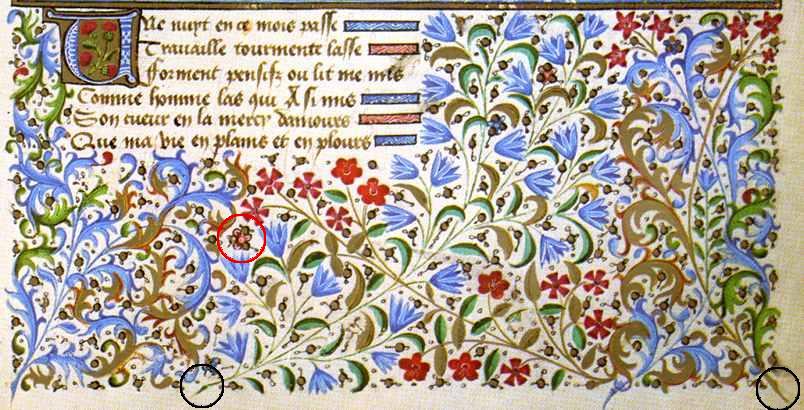 Une nuyt en ce mois passe
Travaille tourmente lasse
fforment pensifz ou lit me mis
Comme homme las qui A si mis
Son cueur en la mercy damours
Que ma vie en plains et en plours